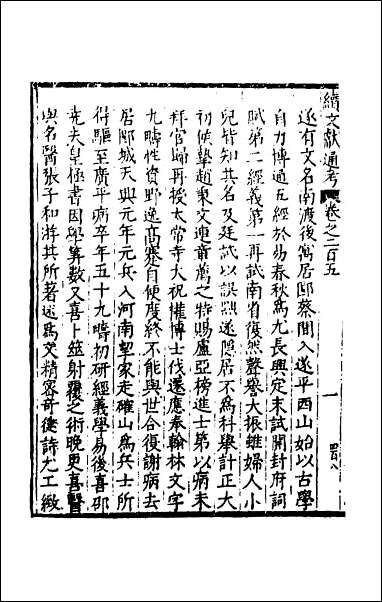 續文獻通考 卷之二百五 一 四百八
遂有文名南渡後寓居郾蔡間入遂平西山始以古學
自力博通五經於易春秋爲尤長興定末試開封府詞
賦第二經義第一再試南省復然聲譽大振雖婦人小
兒皆知其名及廷試以誤絀遂隱居不爲科舉計正大
初侯摯趙秉文連章薦之特賜盧亞榜進士第以病未
拜官歸再授太常寺大祝權博士俄遷應奉翰林文字
九疇性資野逸高蹇自便度終不能與世合復謝病去
居郾城天興元年元兵入河南挈家走確山爲兵士所
得驅至廣平病卒年五十九疇初研經義學易後喜邵
堯夫皇極書因學算數又喜卜筮射覆之術晚更喜醫
與名醫張子和游其所著述爲文精密奇健詩尤工緻